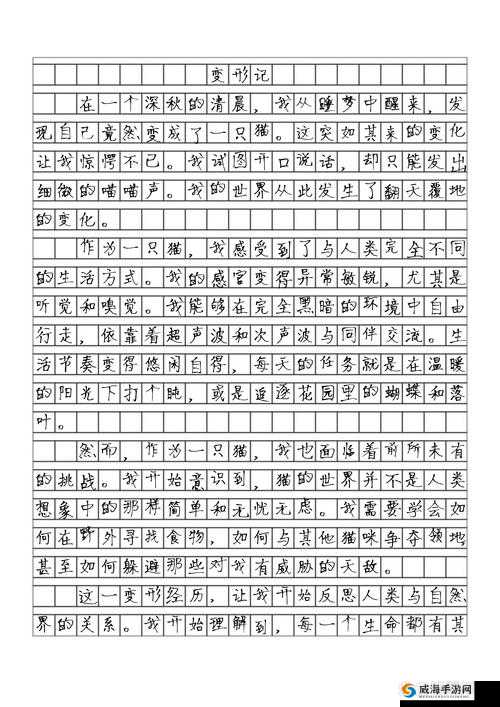 变形记
在一个深秋的清晨，我从睡梦中醒来，发
现自己竟然变成了一只猫。这突如其来的变化
让我惊愕不已。我试图开口说话，却只能发出
细微的喵喵声。我的世界从此发生了翻天覆地
的变化。
作为一只猫，我感受到了与人类完全不同
的生活方式。我的感官变得异常敏锐，尤其是
听觉和嗅觉。我能够在完全黑暗的环境中自由
行走，依靠着超声波和次声波与同伴交流。生
活节奏变得悠闲自得，每天的任务就是在温暖
的阳光下打个盹，或是追逐花园里的蝴蝶和落
叶。
然而，作为一只猫，我也面临着前所未有
的挑战。我开始意识到，猫的世界并不是人类
想象中的那样简单和无忧无虑。我需要学会如
何在野外寻找食物，如何与其他猫咪争夺领地
甚至如何躲避那些对我有威胁的天敌。
这一变形经历，让我开始反思人类与自然
界的关系。我开始理解到，每一个生命都有其
威海手游网